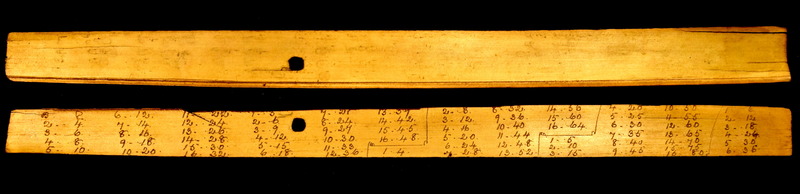 2 - 4
3 - 6
4 - 8
5 - 10
6 - 12
7 - 14
8 - 16
9 - 18
10 - 20
11 - 22
12 - 24
13 - 26
14 - 28
15 - 30
16 - 32
2 - 6
3 - 9
4 - 12
5 - 15
6 - 18
7 - 21
8 - 24
9 - 27
10 - 30
11 - 33
12 - 36
13 - 39
14 - 42
15 - 45
16 - 48
1 - 4
2 - 8
3 - 12
4 - 16
5 - 20
6 - 24
7 - 28
8 - 32
9 - 36
10 - 40
11 - 44
12 - 48
13 - 52
14 - 56
15 - 60
16 - 64
1 - 5
2 - 10
3 - 15
4 - 20
5 - 25
6 - 30
7 - 35
8 - 40
9 - 45
10 - 50
11 - 55
12 - 60
13 - 65
14 - 70
15 - 75
16 - 80
2 - 12
3 - 18
4 - 24
5 - 30
6 - 36